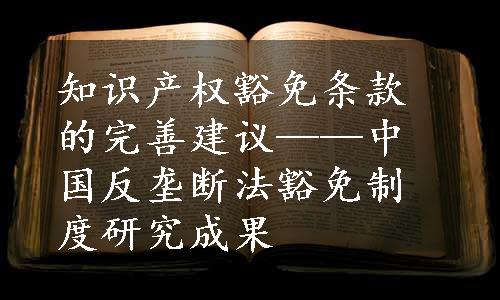 知识产权豁免条款
的完善建议——中
国反垄断法豁免制
度研究成果